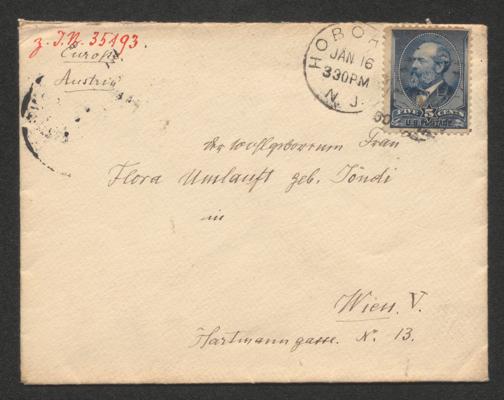 z. I.N. 35193.
Europe
Austria
HOBOKEN
JAN 16
330PM
N. J.
FIVE 5 CENTS
U.S. POSTAGE
der wohlgeborenen Frau
Flora Umlauft geb. Jöndi
in
Wien. V.
Hartmanngasse. No. 13.